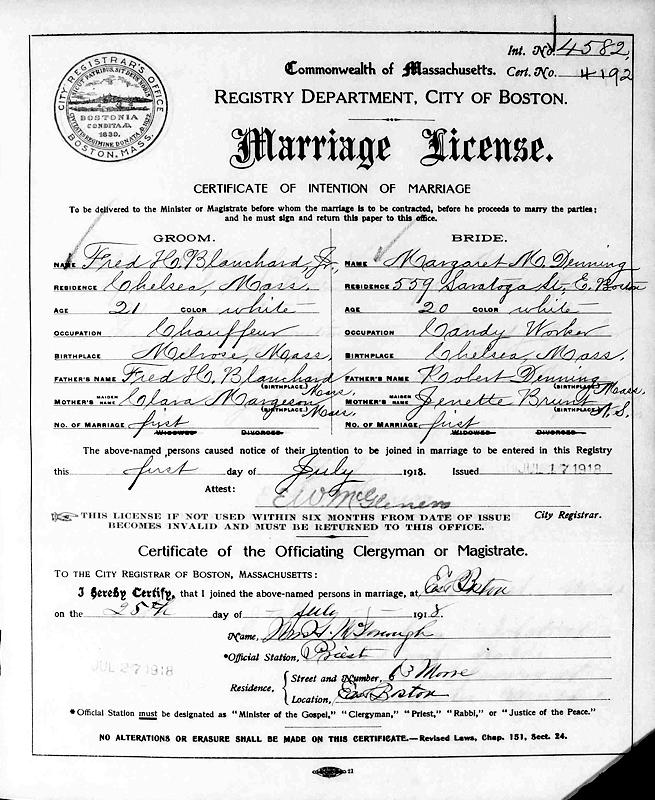 Int. No. 4582
Commonwealth of Massachusetts. Cert. No. 4192
CITY REGISTRAR'S OFFICE
BOSTONIA
CONDITA A.D.
1630.
BOSTON, MASS.
REGISTRY DEPARTMENT, CITY OF BOSTON.
Marriage License.
CERTIFICATE OF INTENTION OF MARRIAGE
To be delivered to the Minister or Magistrate before whom the marriage is to be contracted, before he proceeds to marry the parties;
and he must sign and return this paper to this office.
GROOM. BRIDE.
NAME Fred H. Blanchard, Jr., NAME Margaret M. Denning
RESIDENCE Chelsea, Mass. RESIDENCE 559 Saratoga St., E. Boston
AGE 21 COLOR white AGE 20 COLOR white
OCCUPATION Chauffeur OCCUPATION Candy Worker
BIRTHPLACE Melrose, Mass. BIRTHPLACE Chelsea, Mass.
FATHER'S NAME Fred H. Blanchard (BIRTHPLACE) Mass. FATHER'S NAME Robert Denning (BIRTHPLACE) Mass.
MOTHER'S MAIDEN NAME Clara Margeson (BIRTHPLACE) Mass. MOTHER'S MAIDEN NAME Jenette (BIRTHPLACE) N. S.
NO. OF MARRIAGE first WIDOWED DIVORCED NO. OF MARRIAGE first WIDOWED DIVORCED
The above-named persons caused notice of their intention to be joined in marriage to be entered in this Registry
this first day of July 1918. Issued JUL 17 1918
Attest: E W
City Registrar.
THIS LICENSE IF NOT USED WITHIN SIX MONTHS FROM DATE OF ISSUE
BECOMES INVALID AND MUST BE RETURNED TO THIS OFFICE.
Certificate of the Officiating Clergyman or Magistrate.
TO THE CITY REGISTRAR OF BOSTON, MASSACHUSETTS:
I hereby Certify, that I joined the above-named persons in marriage, at East Boston
on the 25th day of July 1918.
Name,
*Official Station, Priest
JUL 27 1918
Residence, Street and Number, 63 Moore
Location, East Boston
*Official Station must be designated as "Minister of the Gospel," "Clergyman," "Priest," "Rabbi," or "Justice of the Peace."
NO ALTERATIONS OR ERASURE SHALL BE MADE ON THIS CERTIFICATE.—Revised Laws, Chap. 151, Sect. 24.